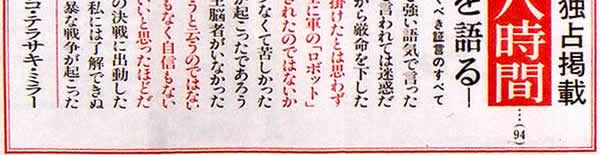 独占掲載
八時間
…(94)
を語る―
べき証言のすべて
強い語気で言った
言われては迷惑だ
から厳命を下した
掛けたとは思わず
に軍の「ロボット」
されたのではないか
なくて苦しかった
が起こったであろう
主脳者がいなかった
うと云うのではない
もなく自信もない
いと思ったほどだ
の決戦に出動した
私には了解できぬ
暴な戦争が起こった
コ・テラサキ・ミラー